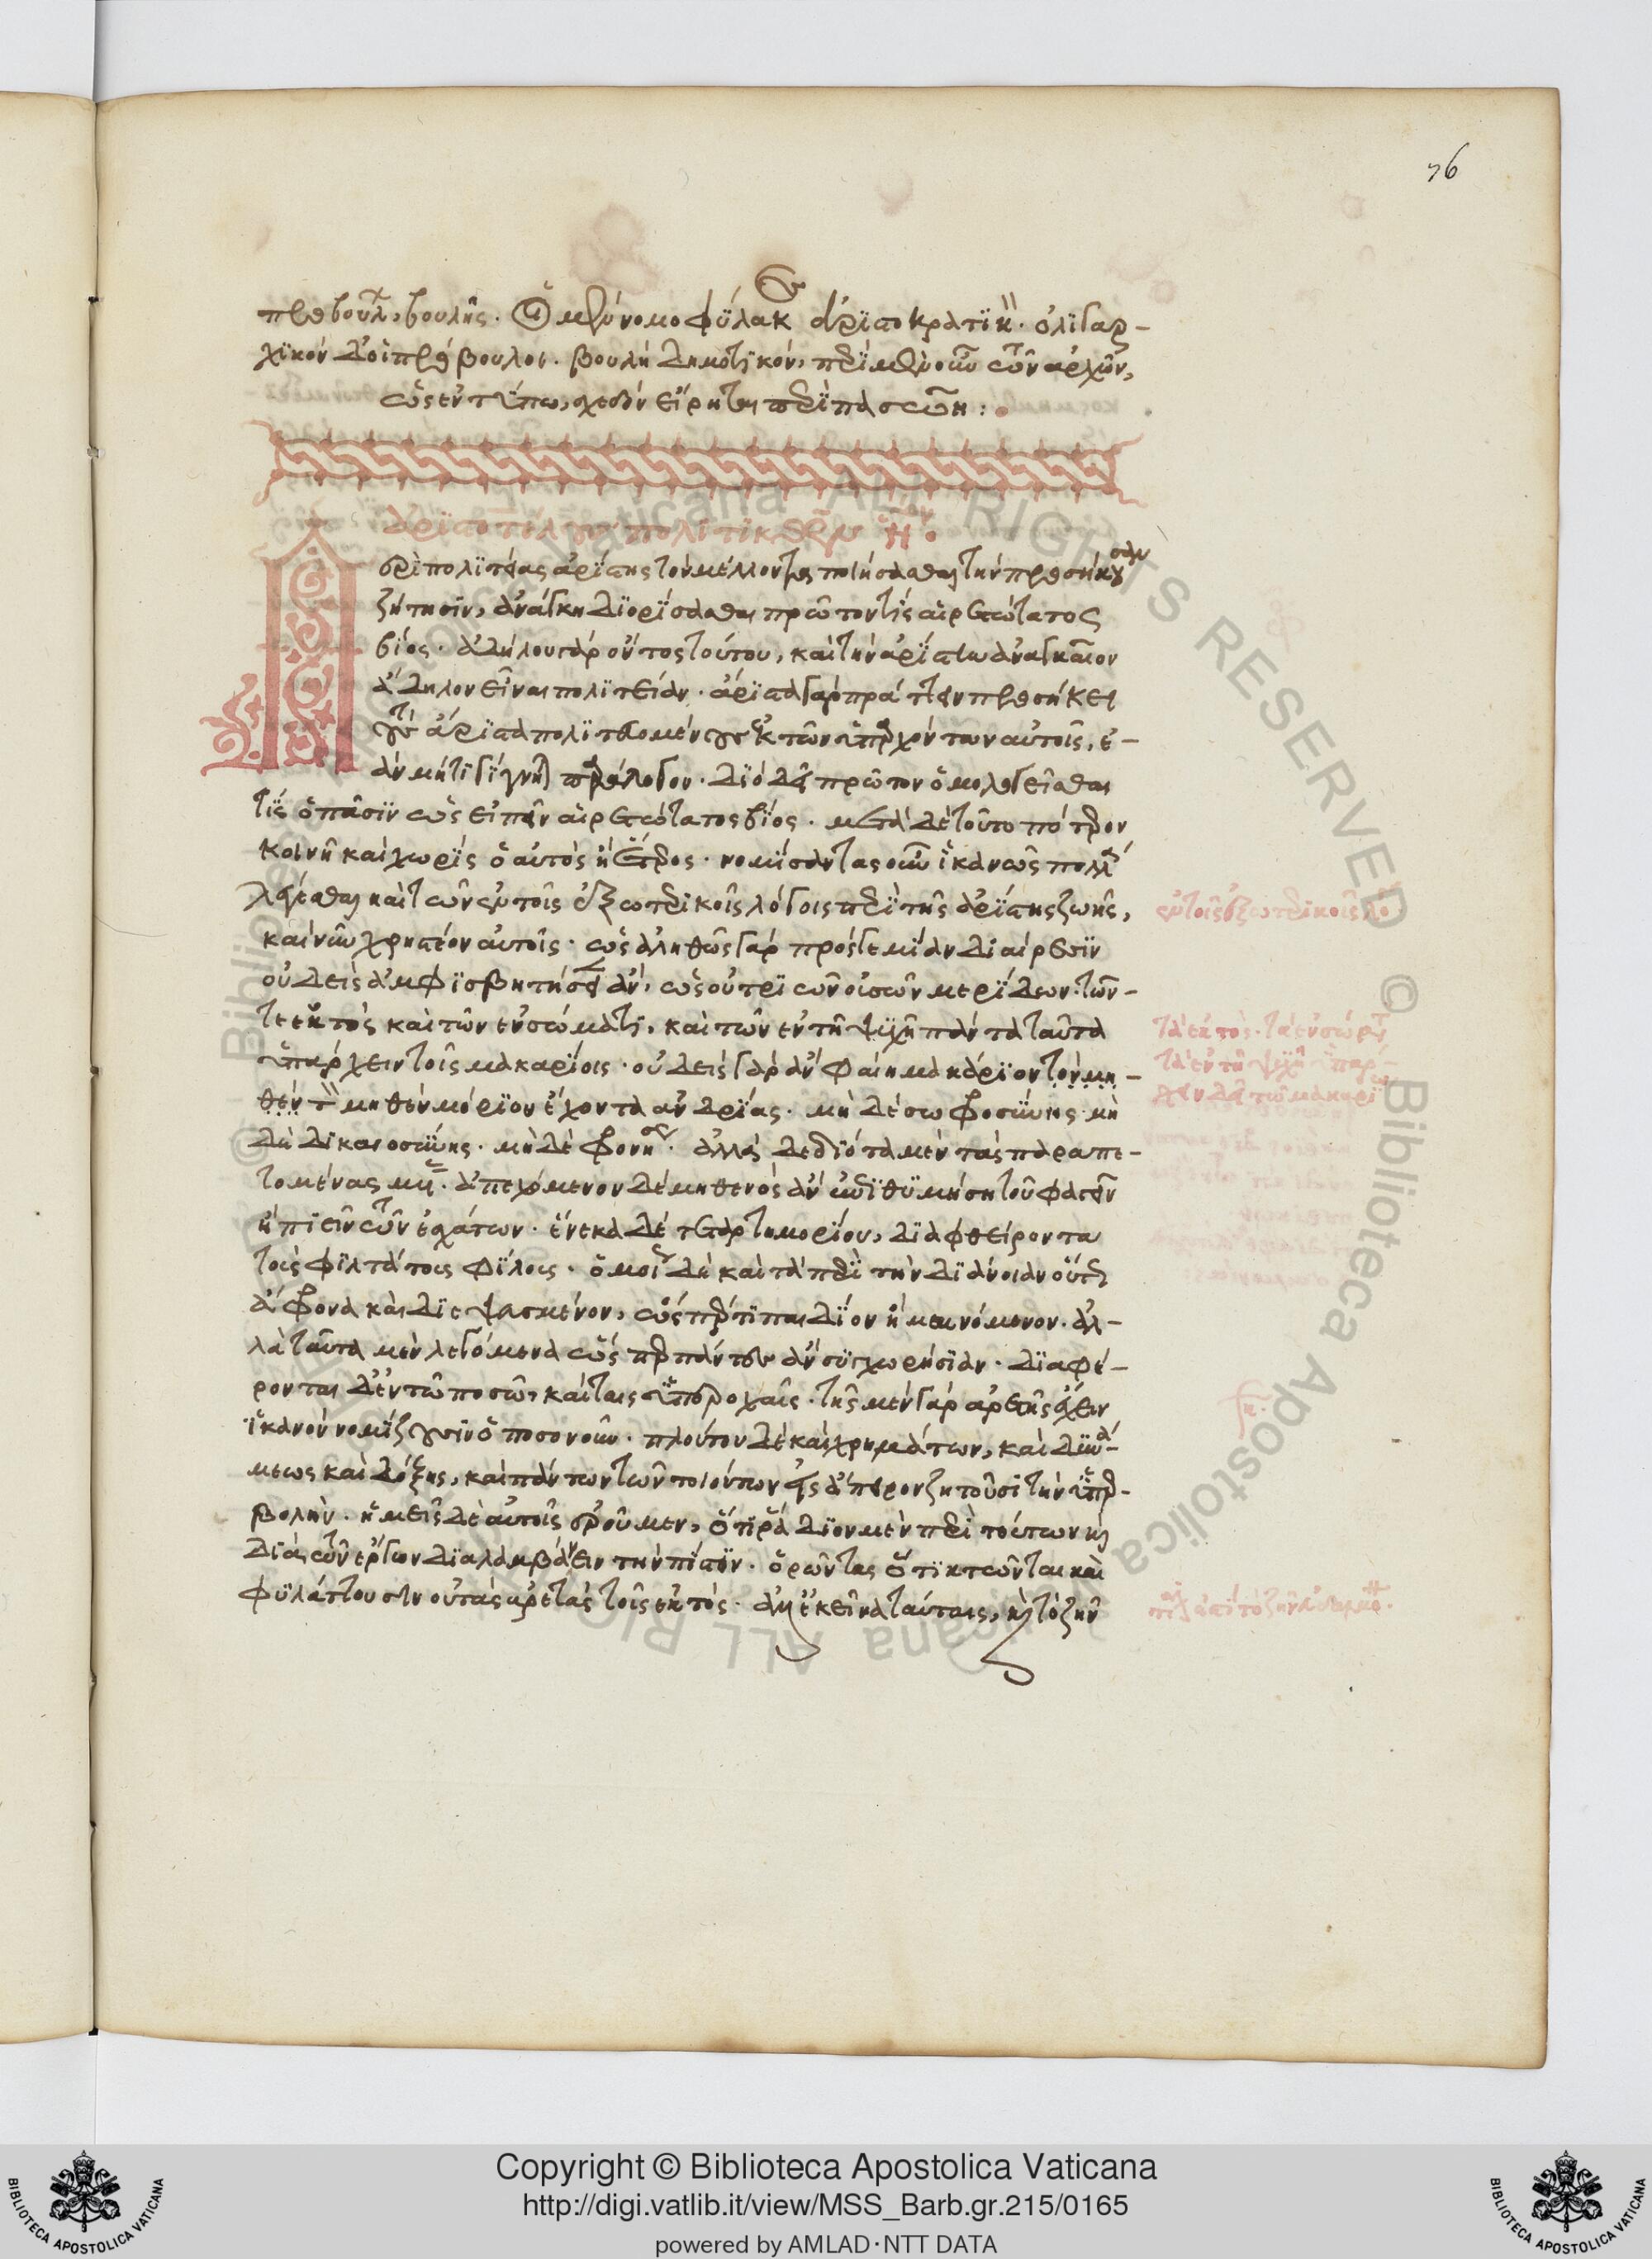 76
προβούλων, βουλῆς. ὧν οἱ μὲν νομοφύλακες ἀριστοκρατικόν. ὀλιγαρ-
χικὸν δ' οἱ πρόβουλοι. βουλὴ δημοτικόν, περὶ μὲν οὖν τῶν ἀρχῶν,
ὡς ἐν τύπω, σχεδὸν εἴρηται περὶ πασῶν:
ἀριστοτέλους πολιτικῶν
περὶ πολιτείας ἀρίστης τὸν μέλλοντα ποιήσασθαι τὴν προσήκουσαν
ζήτησιν, ἀνάγκη διορίσασθαι πρῶτον τίς αἱρετώτατος
βίος. ἀδήλου γὰρ ὄντος τούτου, καὶ τὴν ἀρίστην ἀναγκαῖον
ἄδηλον εἶναι πολιτείαν. ἄριστα γὰρ πράττειν προσήκει
τοὺς ἄριστα πολιτευομένους ἐκ τῶν ὑπαρχόντων αὐτοῖς, ἐ-
ὰν μή τι γίγνηται παράλογον. διὸ δεῖ πρῶτον ὁμολογεῖσθαι
τίς ὁ πᾶσιν ὡς εἰπεῖν αἱρετώτατος βίος. μετὰ δὲ τοῦτο πότερον
κοινῆ καὶ χωρὶς ὁ αὐτὸς ἢ ἕτερος. νομίσαντας οὖν ἱκανῶς πολλὰ
λέγεσθαι καὶ τῶν ἐν τοῖς ἐξωτερικοῖς λόγοις περὶ τῆς ἀρίστης ζωῆς,
καὶ νῦν χρηστέον αὐτοῖς. ὡς ἀληθῶς γὰρ πρός γε μίαν διαίρεσιν
οὐδεὶς ἀμφισβητήσειεν ἄν, ὡς οὐ τριῶν οὐσῶν μερίδων. τῶν
τε ἐκτὸς καὶ τῶν ἐν σώματι, καὶ τῶν ἐν τῆ ψυχῆ πάντα ταῦτα
ὑπάρχειν τοῖς μακαρίοις. οὐδεὶς γὰρ ἂν φαίη μακάριον τὸν μη-
θὲν μηθὲν μόριον ἔχοντα ἀνδρίας. μὴ δὲ σωφροσύνης μὴ
δὲ δικαιοσύνης. μὴ δὲ φρονήσεως. ἀλλὰ δεδιότα μὲν τὰς παραπε-
τομένας μυίας. ἀπεχόμενον δὲ μηθενὸς ἂν ἐπιθυμήση τοῦ φαγεῖν
ἢ πιεῖν τῶν ἐσχάτων. ἕνεκα δὲ τεταρτημορίου, διαφθείροντα
τοὺς φιλτάτους φίλους. ὁμοίως δὲ καὶ τὰ περὶ τὴν διάνοιαν οὕτως
ἄφρονα καὶ διεψευσμένον, ὥσπερ τι παιδίον ἢ μαινόμενον. ἀλ-
λὰ ταῦτα μὲν λεγόμενα ὥσπερ πάντες ἂν συγχωρήσειαν. διαφέ-
ρονται δ' ἐν τῶ ποσῶ, καὶ ταῖς ὑπεροχαῖς. τῆς μὲν γὰρ ἀρετῆς ἔχειν
ἱκανὸν νομίζουσιν ὁποσονοῦν. πλούτου δὲ καὶ χρημάτων, καὶ δυνά-
μεως καὶ δόξης, καὶ πάντων τῶν τοιούτων εἰς ἄπειρον ζητοῦσι τὴν ὑπερ-
βολήν. ἡμεῖς δὲ αὐτοῖς ἐροῦμεν, ὅτι ῥάδιον μὲν περὶ τούτων καὶ
διὰ τῶν ἔργων διαλαμβάνειν τὴν πίστιν. ὁρῶντας ὅτι κτῶνται καὶ
φυλάττουσιν οὐ τὰς ἀρετὰς τοῖς ἐκτὸς. ἀλλ' ἐκεῖνα ταύταις, καὶ τὸ ζῆν
ἐν τοῖς ἐξωτερικοῖς λό
τὰ ἐκτὸς. τὰ ἐν σώματι
τὰ ἐν τῆ ψυχῆ ὑπάρ-
χειν δεῖ τῶ μακαρίω
Copyright © Biblioteca Apostolica Vaticana
http://digi.vatlib.it/view/MSS_Barb.gr.215/0165
powered by AMLAD·NTT DATA
BIBLIOTECA APOSTOLICA VATICANA
BIBLIOTECA APOSTOLICA VATICANA